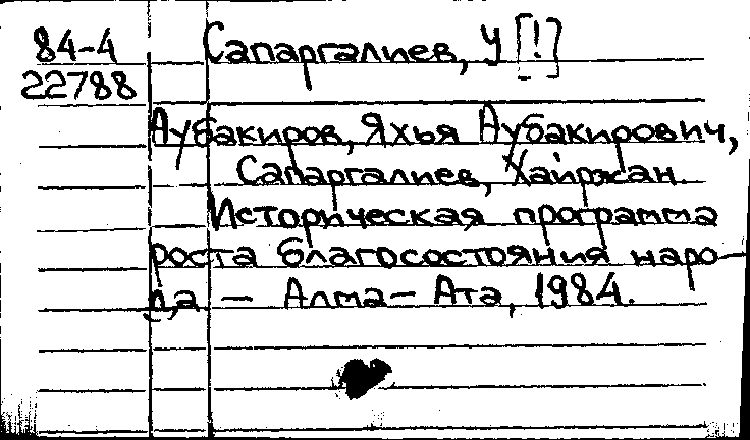 84-4 Сапаргалиев, У [!]
22788
Аубакиров, Яхья Аубакирович,
Сапаргалиев, Хайржан.
Историческая программа
роста благосостояния наро-
да — Алма-Ата, 1984.